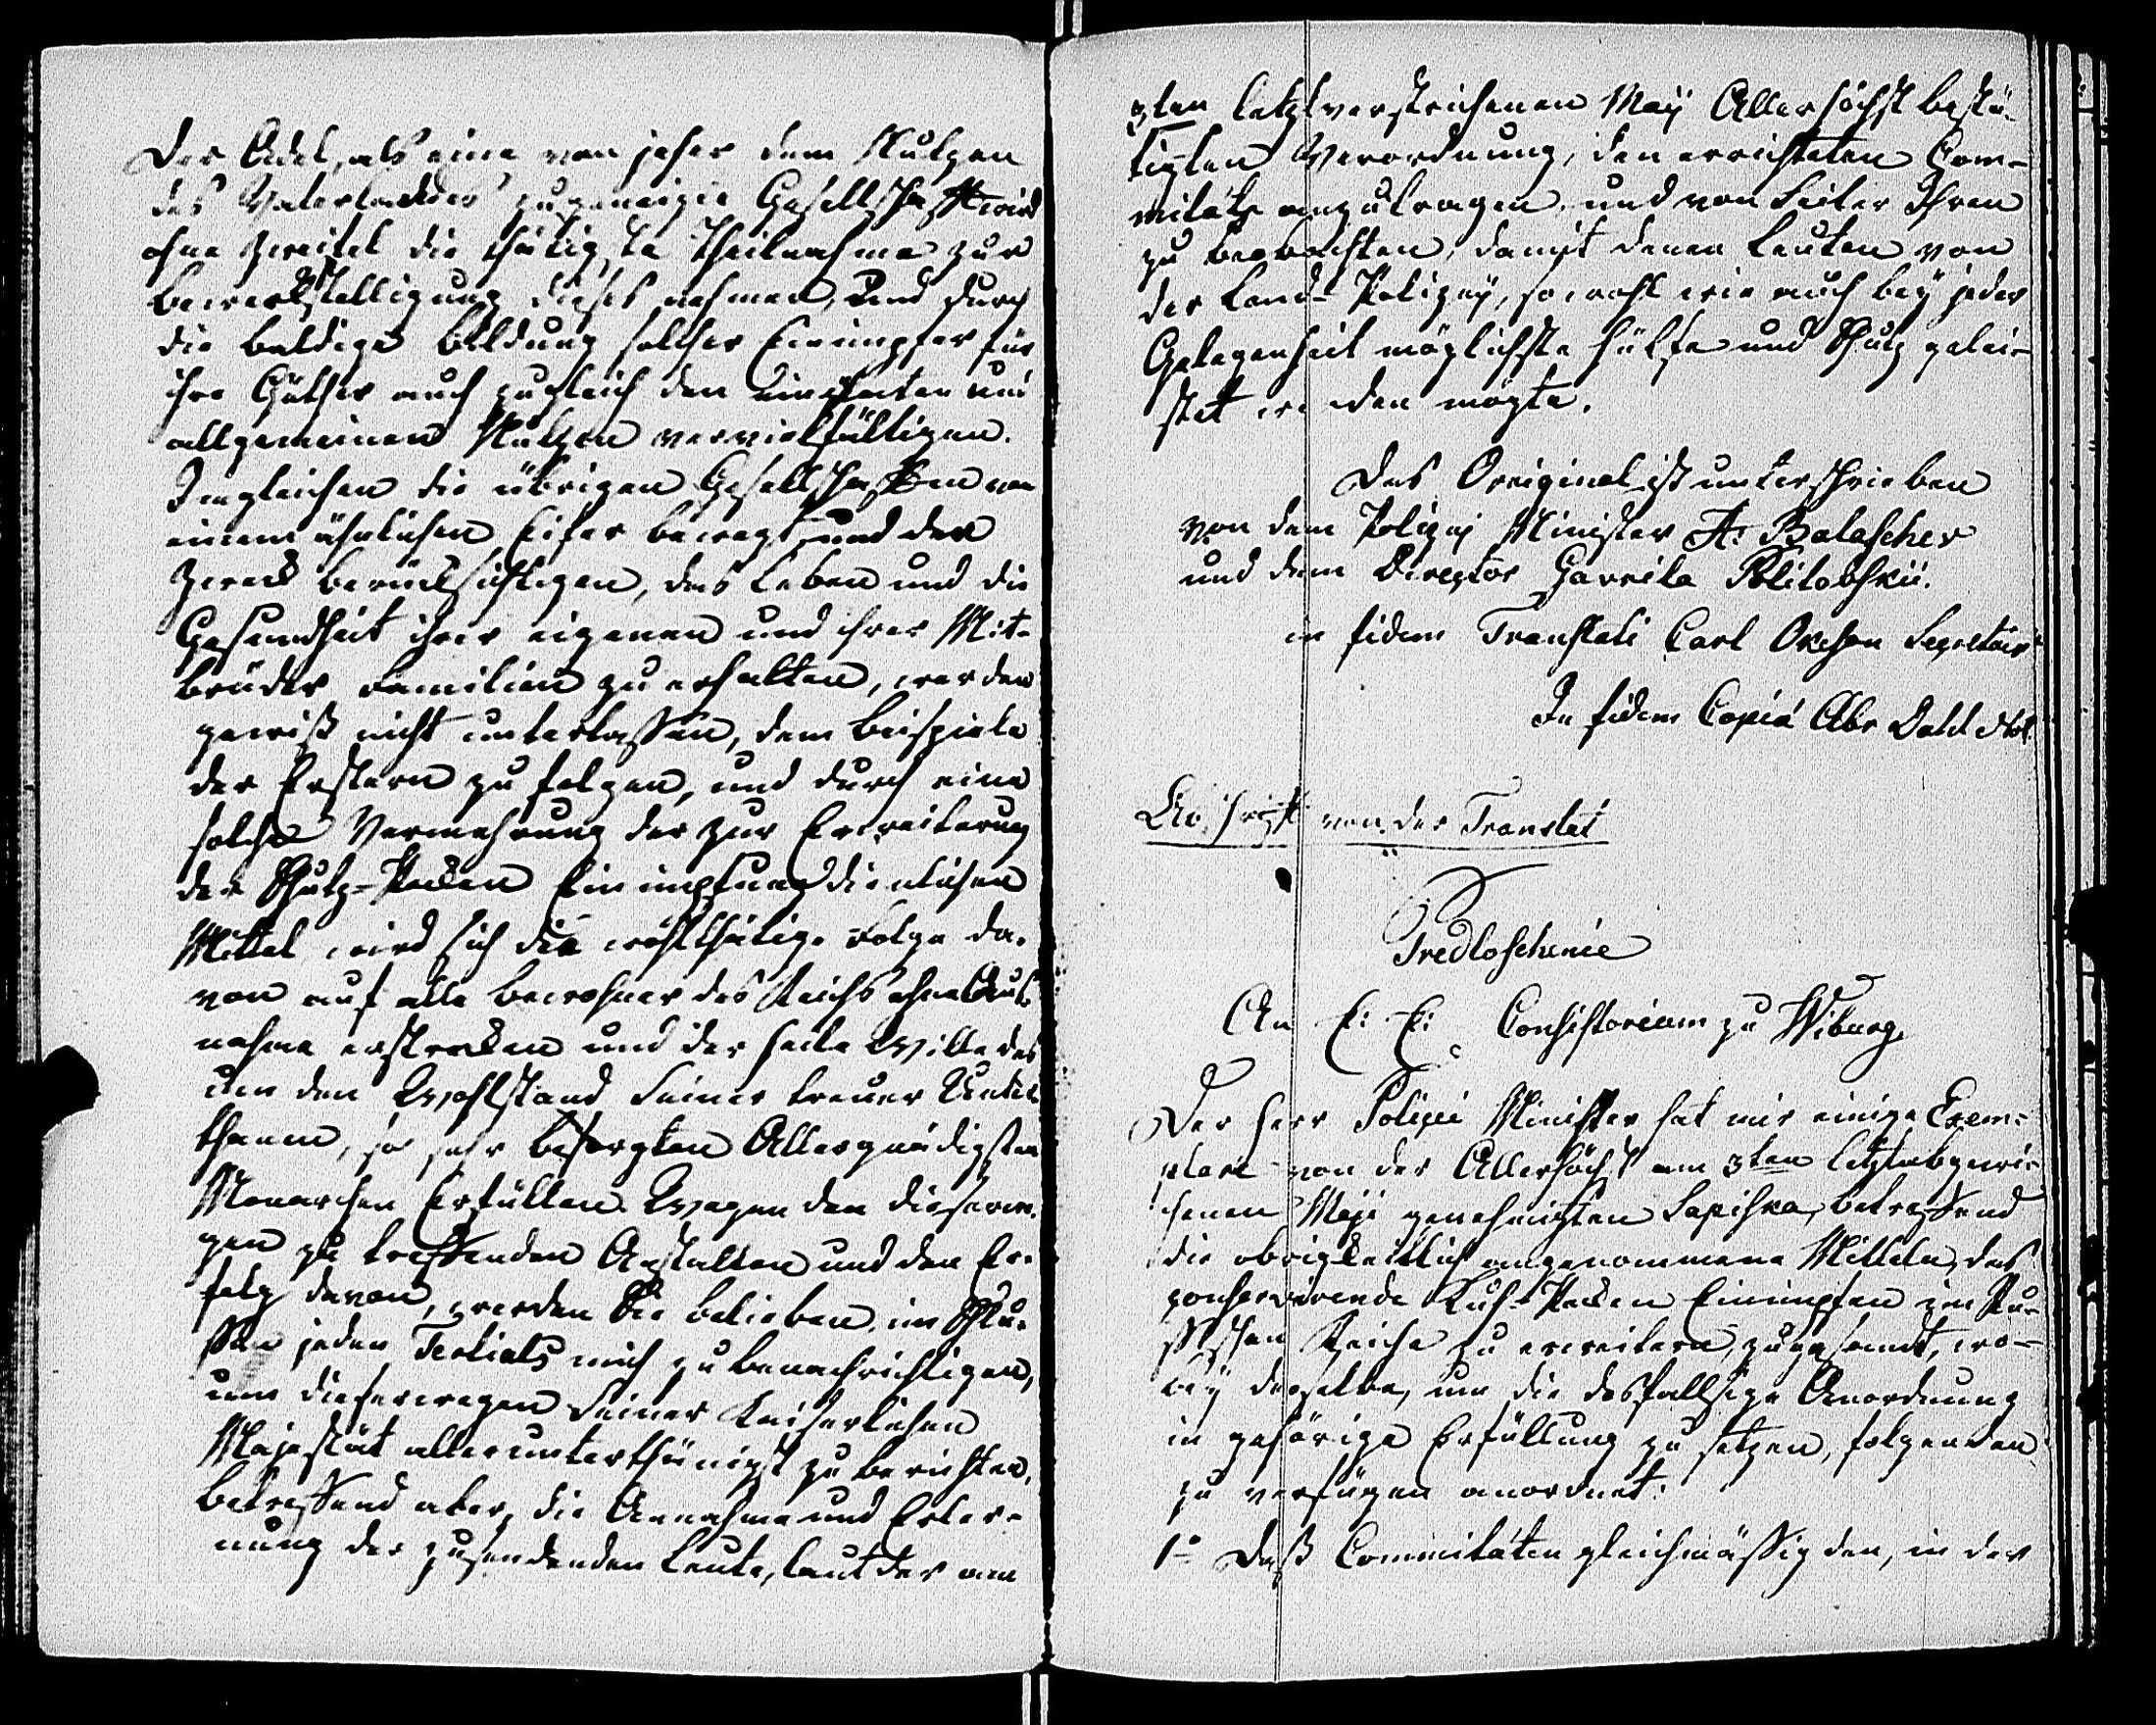 Der Adel, als eine von jeher dem Nutzen
des Vaterlandes zugeneigte Gesellschaft wird
ohne Zweifel die thätigste Theilnahme zur
Bewerkstelligung dieses nehmen, und durch
die baldige Bildung solcher Einimpfer für
ihre Güther auch zugleich den
allgemeinen Nutzen vervielfältigen.
Imgleichen die übrigen Gesellschaften von
einem ähnlichen Eifer bewegt, und den
Zweck berücksichtigen, das Leben und die
Gesundheit ihrer eigenen und ihrer Mit-
brüder Familien zu erhalten, werden
gewiß nicht unterlassen, dem Beispiele
der Erstern zu folgen, und durch eine
solche Vermehrung der zur Erweiterung
der Schutz-Pocken Einimpfung dienlichen
Mittel wird sich die wohlthätige Folge da-
von auf alle Bewohner des Reichs ohne Aus-
nahme erstrecken und der Wille des
um den Wohlstand Seiner treuen Unter-
thanen, so sehr besorgten Allergnädigsten
Monarchen Erfüllen. Wegen den dieserwe-
gen zu treffenden Anstalten und den Er-
folg davon, werden Sie belieben, im Schlu-
ße jeden Tertials mich zu benachrichtigen,
um dieserwegen Seiner Kaiserlichen
Majestät allerunterthänigst zu berichten,
betreffend aber, die Annahme und Erler-
nung der zusendenden Leute, laut der am
3ten letztverstrichenen Maÿ Allerhöchst bestä-
tigten Verordnung, den errichteten Com-
mitäts anzutragen und von Seiten Ihren
zu beobachten, damit denen Leuten von
der Land-Polizeÿ, sowohl wie auch beÿ jeder
Gelegenheit möglichste Hülfe und Schutz gelei-
stet werden mögte.
Das Original ist unterschrieben
von dem Polizeÿ Minister A: Balascher
und dem Director Gavrila Politofskii.
in fidem Translati Carl Secretair
In fidem Copiæ Abr Dahl Not.
Abschrift von der Translat
Predloschenie
An E: E: Consistorium zu Wiburg.
Der Herr Policei Minister hat mir einige Exem-
plare von der Allerhöchst am 3ten letztabgewi-
chenen Maji genehmigten Sapiska, betreffend
die obrigkeitlich angenommene Mitteln, das
conservirende Kuh-Pocken Einimpfen im Ru-
ssischen Reiche zu erweitern, zugesandt, wo-
beÿ derselbe, um die desfallsige Anordnung
in gehörige Erfüllung zu setzen, folgenden
zu verfügen anordnet:
1o Daß Commitäten gleichmäßig den, in der